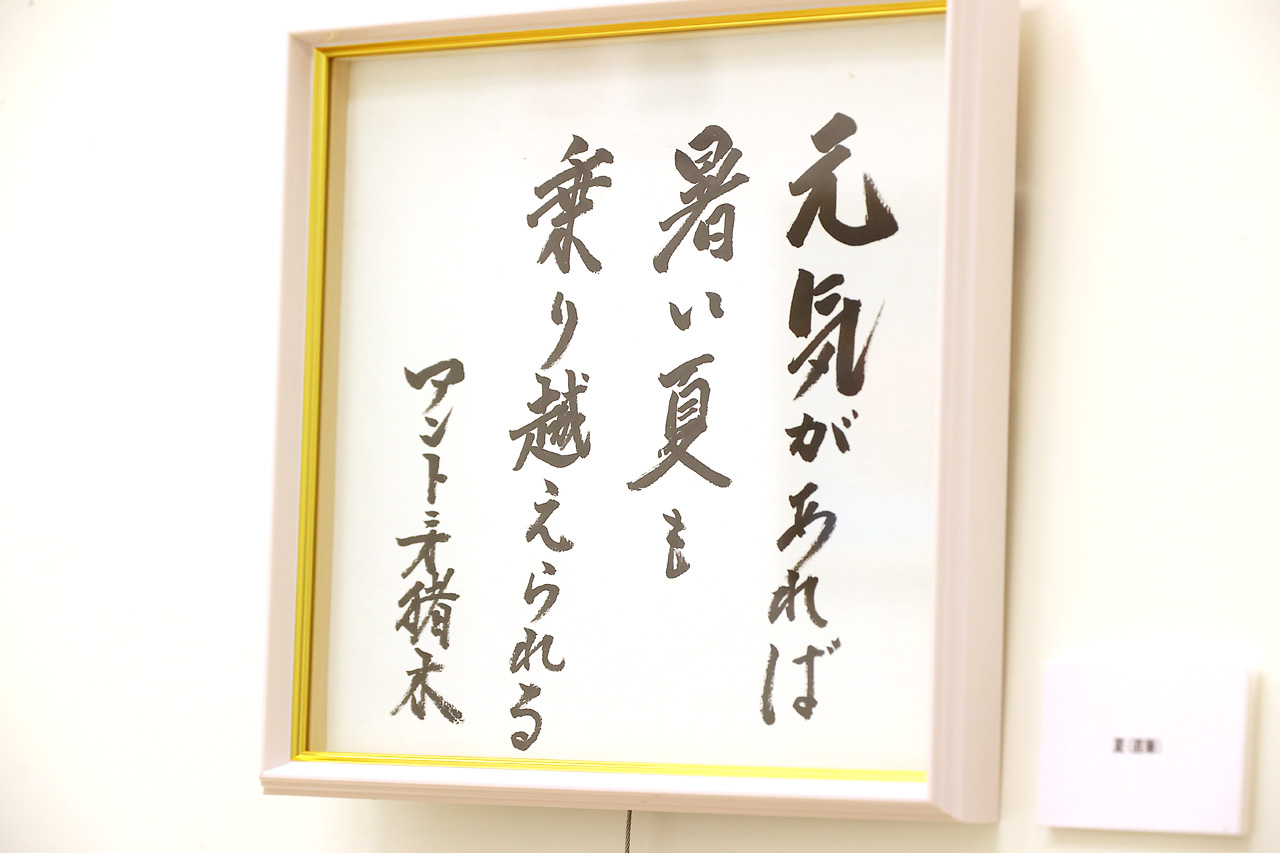 元気があれば
暑い夏も
乗り越えられる
アントニオ猪木